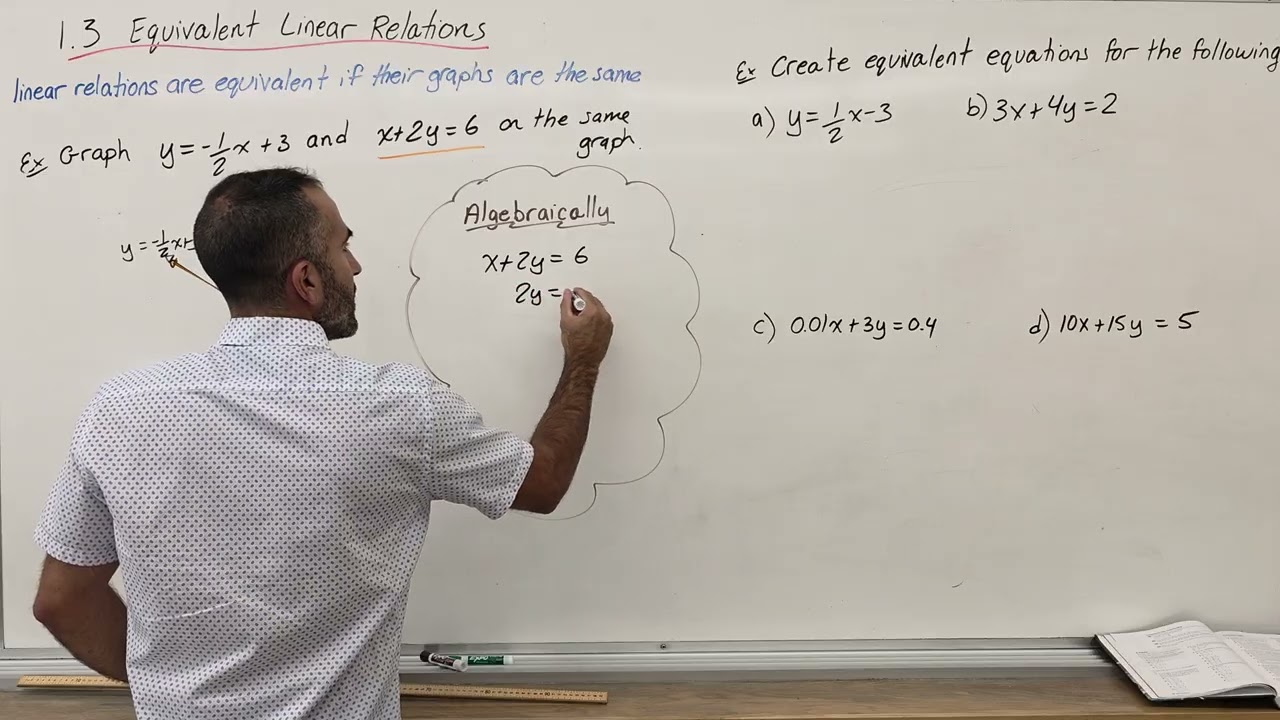 1.3 Equivalent Linear Relations
linear relations are equivalent if their graphs are the same
Ex Graph y = -1/2 x + 3 and x+2y = 6 on the same
graph.
y = -1/2 x +
Algebraically
x+2y = 6
2y =
Ex Create equivalent equations for the following
a) y = 1/2 x - 3 b) 3x + 4y = 2
c) 0.01x + 3y = 0.4 d) 10x + 15y = 5